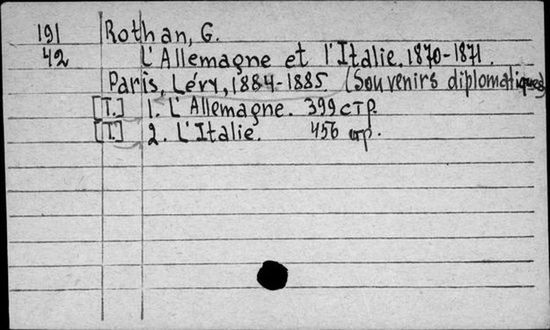 191 Rothan, G.
42 L'Allemagne et l'Italie. 1870-1871.
Paris, Lévy, 1884-1885 (Souvenirs diplomatiques)
[T.] 1. L'Allemagne. 399 стр.
[T.] 2. L'Italie. 456 стр.